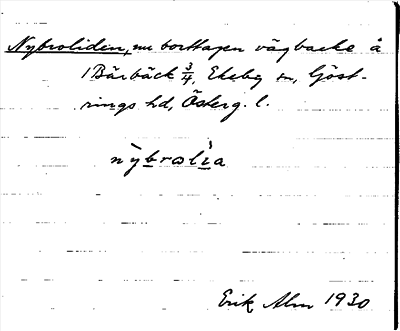 Nybroliden, nu borttagen vägbacke å
1 Bårbäck 3/4, Ekeby sn, Göst-
rings hd, Österg. l.
nỳbrolìa
Erik Alm 1930